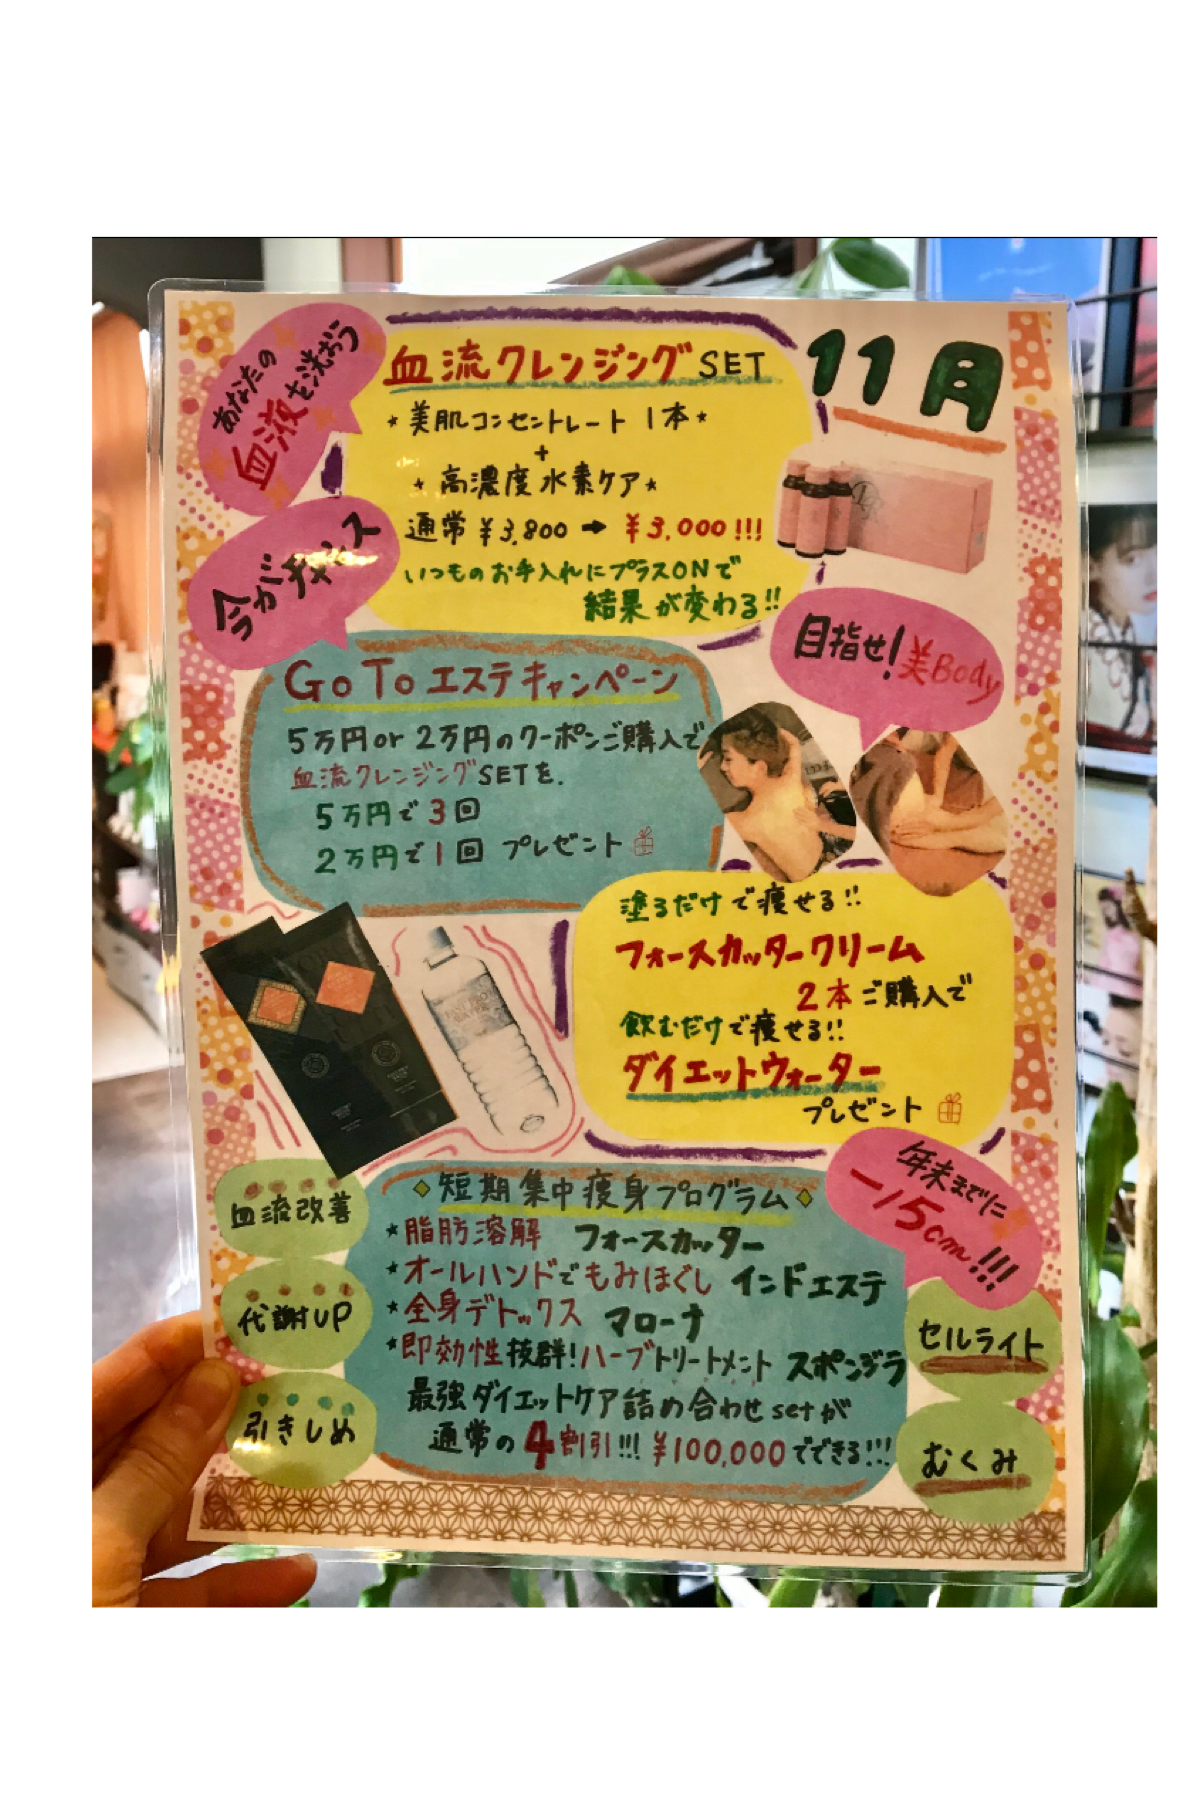 11月
あなたの
血液を洗おう
今がチャンス
血流クレンジングSET
★美肌コンセントレート 1本★
+
★高濃度水素ケア★
通常¥3,800➡¥3,000!!!
いつものお手入れにプラスONで
結果が変わる!!
目指せ!美Body
GoToエステキャンペーン
5万円or2万円のクーポンご購入で
血流クレンジングSETを.
5万円で3回
2万円で1回 プレゼント
塗るだけで痩せる!!
フォースカッタークリーム
2本ご購入で
飲むだけで痩せる!!
ダイエットウォーター
プレゼント
年末までに
-15cm!!!
◇短期集中痩身プログラム◇
★脂肪溶解 フォースカッター
★オールハンドでもみほぐし インドエステ
★全身デトックス マローナ
★即効性抜群!ハーブトリートメント スポンジラ
最強ダイエットケア詰め合わせsetが
通常の4割引!!! ¥100,000でできる!!!
血流改善
代謝UP
引きしめ
セルライト
むくみ